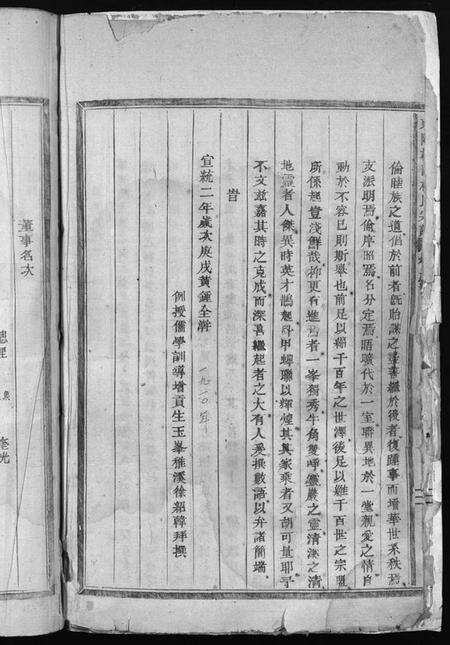 倫睦族之道倡於前者旣貽謀之善繼於後者復踵事而增華世系秩焉
支派明焉倫序昭焉名分定焉晤曠代於一室聯異地於一堂親愛之情自
動於不容已則斯舉也前足以綿千百年之世澤後足以維千百世之宗
所係起豈淺鮮哉抑更有進者一峯獨秀牛角雙呼靈巖之靈清溪之清
地靈者人傑異時英才鵲起科甲蟬聯以輝煌其家乘者又胡可量耶予
不文茲嘉其時之克成而深喜繼起者之大有人爰撰數語以弁諸簡端
旹
宣統二年歲次庚戌黃鍾全澣
一九一〇年
例授儒學訓導增貢生玉峯雅溪徐紹韓拜撰
董事名次
總理
奎光